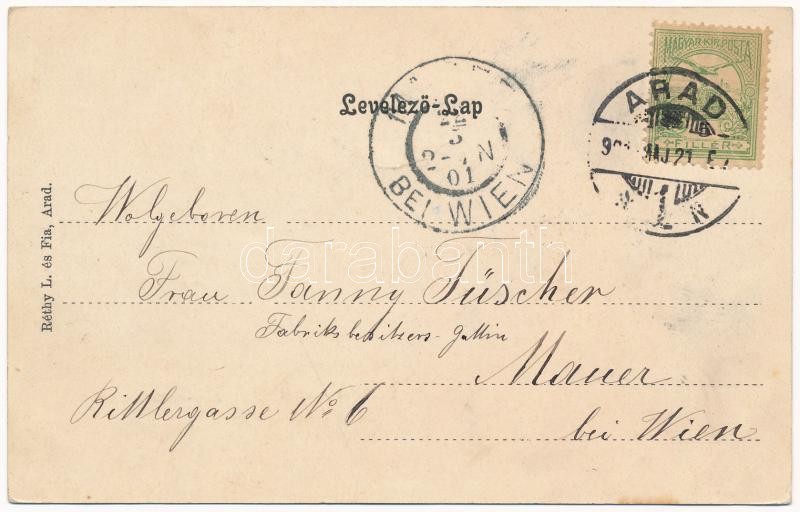 MAGYAR KIR. POSTA
FILLÉR
ARAD
MAJ 21
BEI WIEN
01
N
Levelező-Lap
Wolgeboren
Frau Fanny Füscher
Fabriksbesitzers-Gattin
Mauer
Rittlergasse No 6
bei Wien
Réthy L. és Fia, Arad.
darabanth